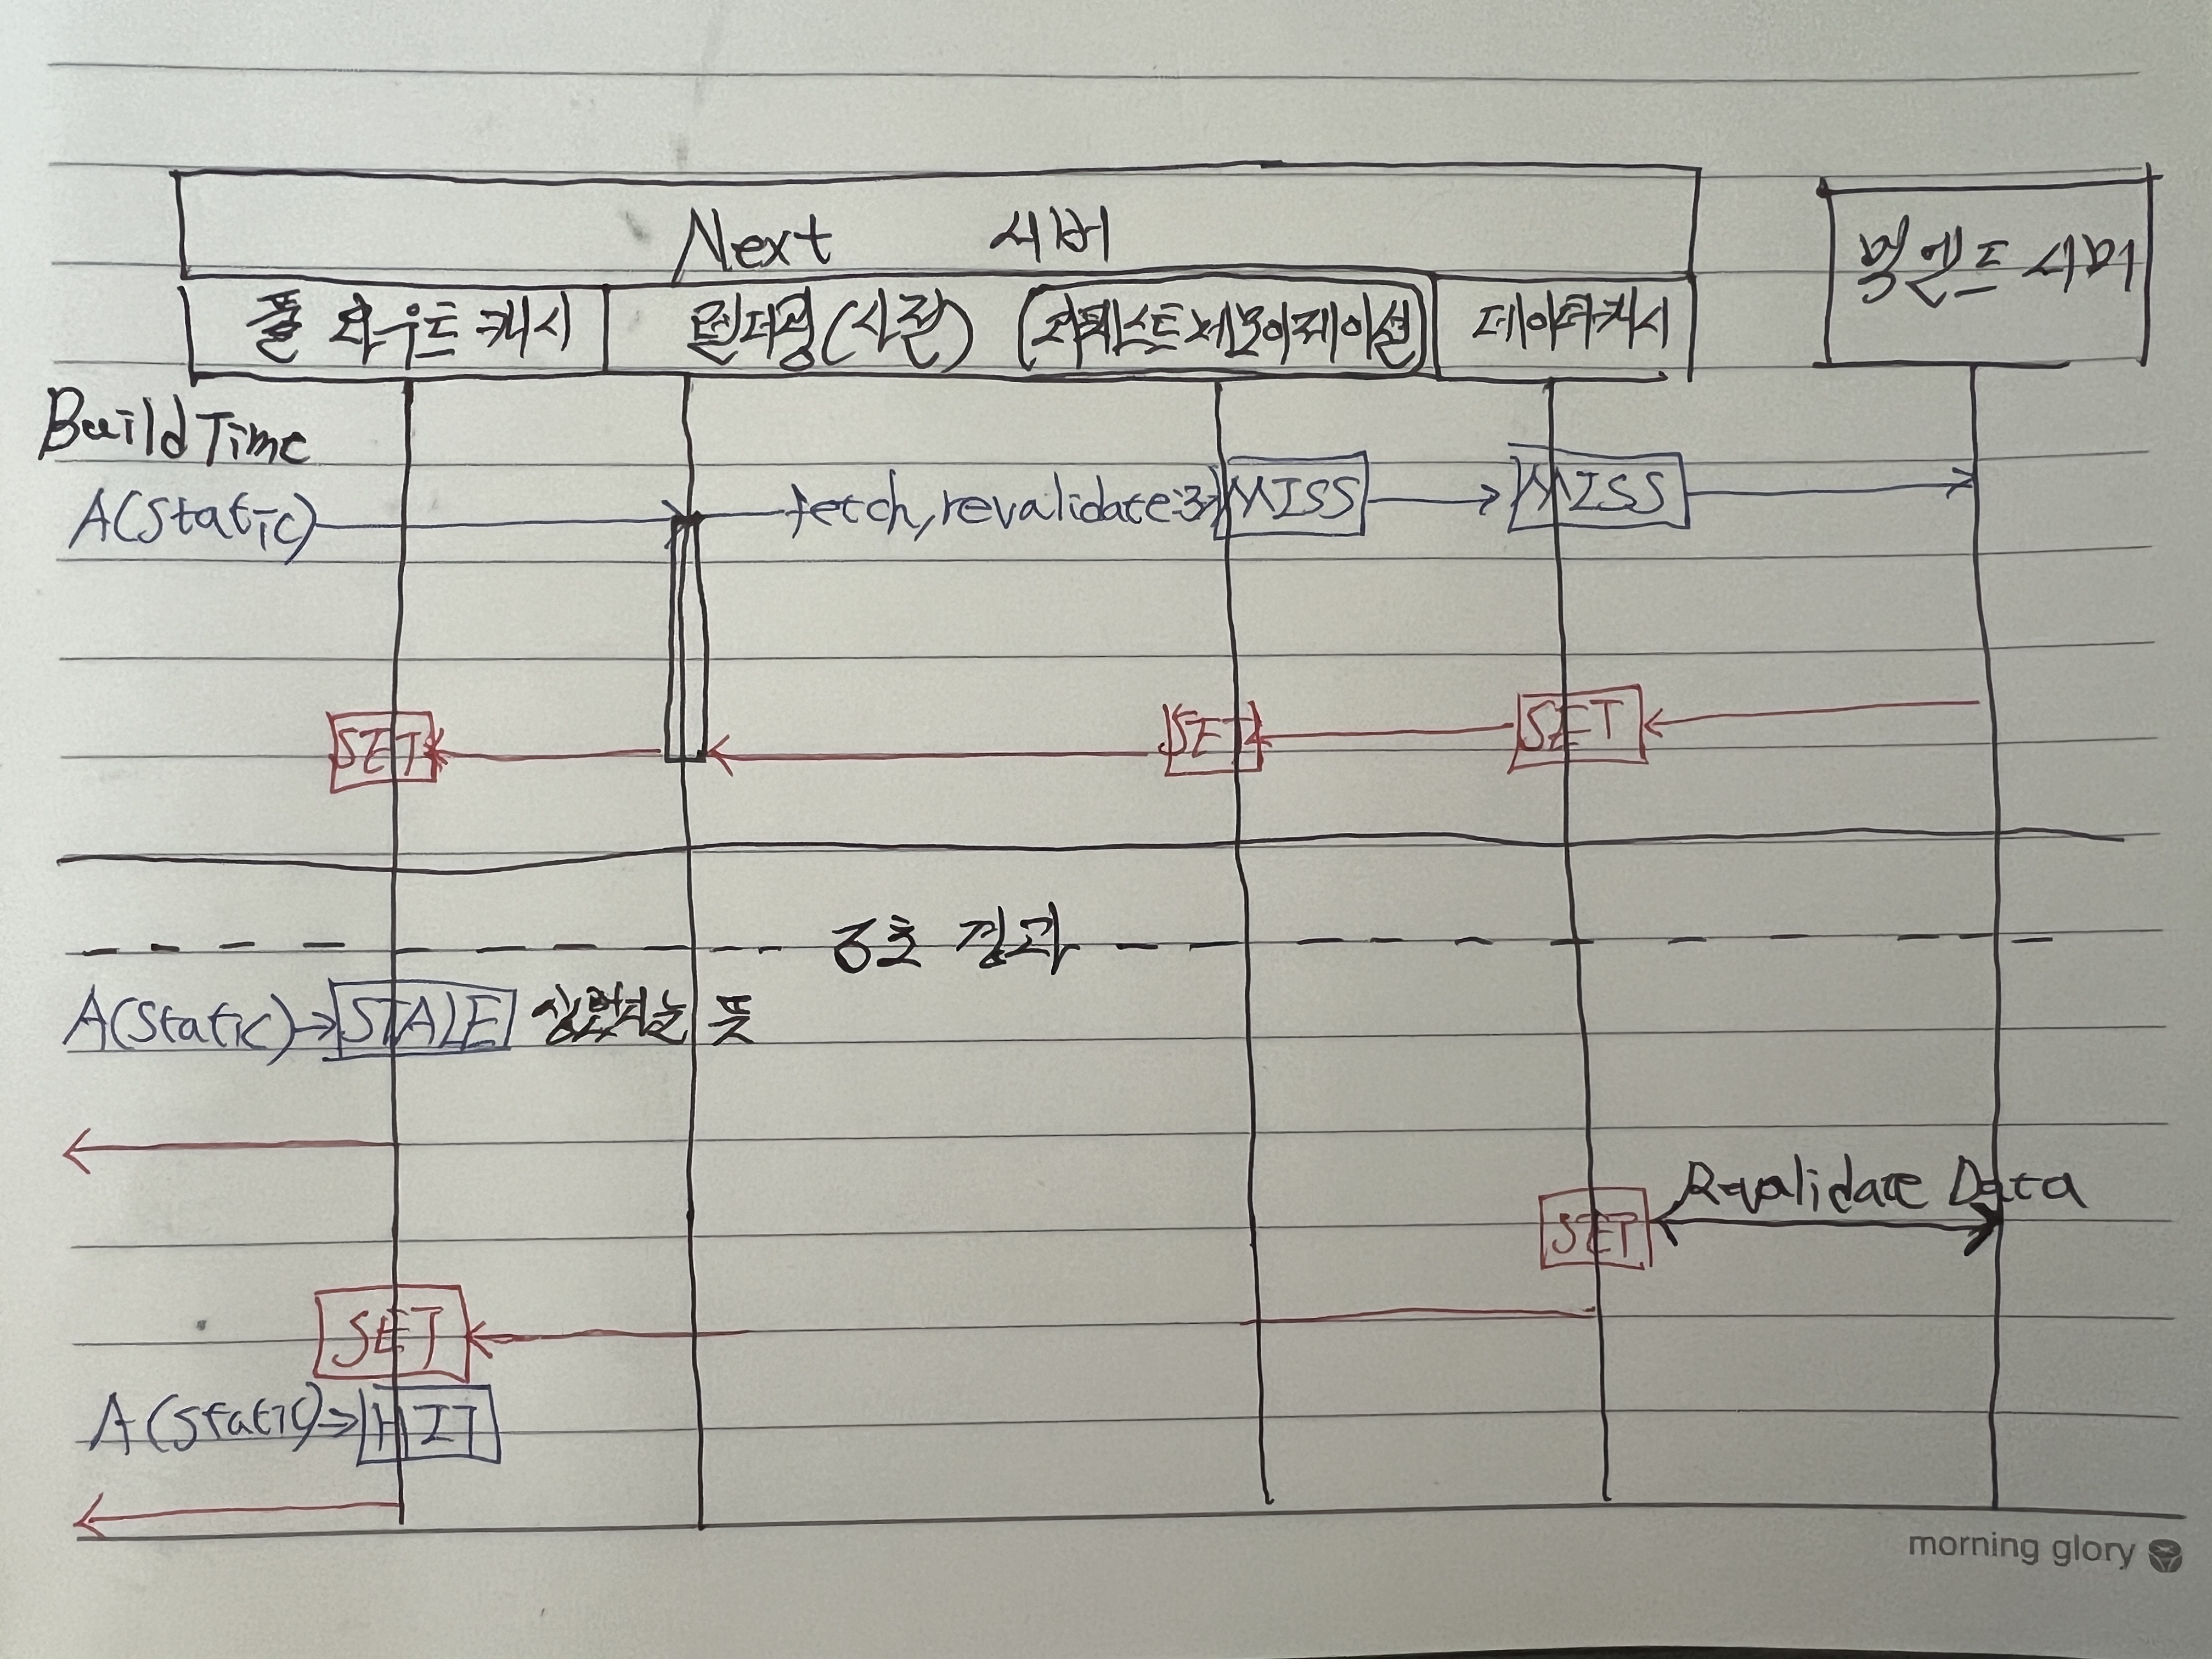 Next 서버
백엔드 서버
풀 라우트 캐시
렌더링(사전)
리퀘스트 메모이제이션
데이터캐시
Build Time
A(Static)
fetch, revalidate:3
MISS
MISS
SET
SET
SET
3초 경과
A(Static)
STALE
상했다는 뜻
Revalidate Data
SET
SET
A(Static)
HIT
morning glory